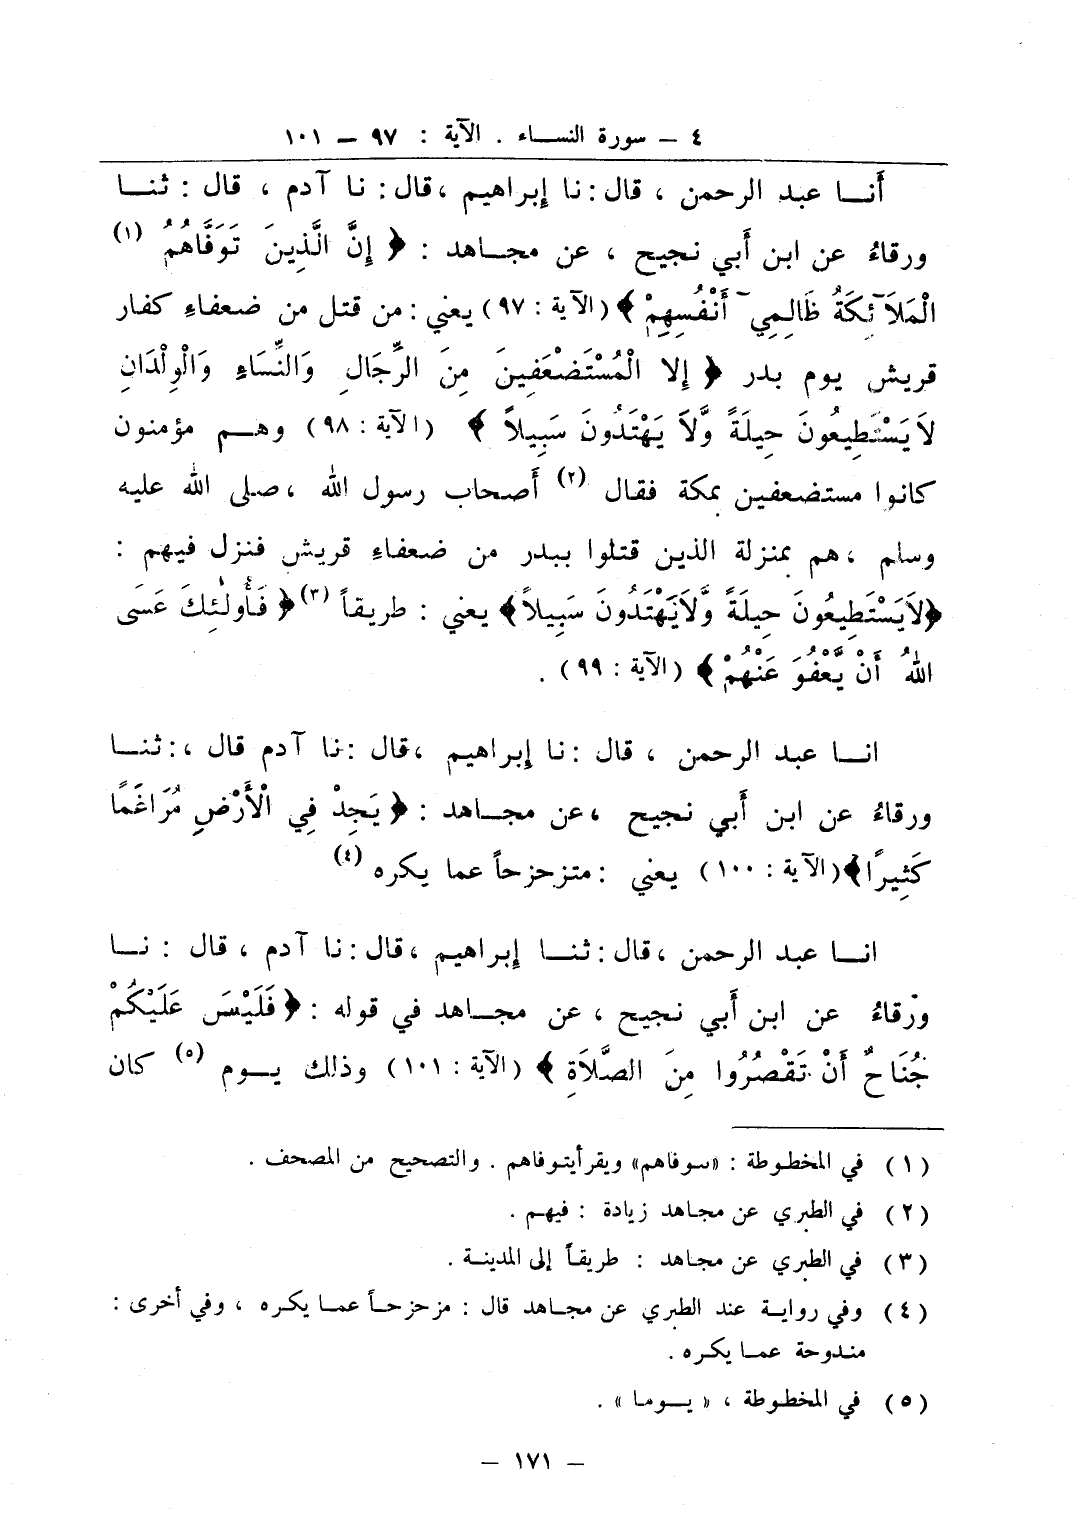 ٤ – سورة النساء . الآية : ٩٧ – ١٠١
أنا عبد الرحمن ، قال : نا إبراهيم ، قال : نا آدم ، قال : ثنا
ورقاءُ عن ابن أبي نجيح ، عن مجاهد : ﴿ إِنَّ الَّذِينَ تَوَفَّاهُمُ (١)
الْمَلَآئِكَةُ ظَالِمِيٓ أَنْفُسِهِمْ ﴾ ( الآية : ٩٧ ) يعني : من قتل من ضعفاءِ كفار
قريش يوم بدر ﴿ إلا الْمُسْتَضْعَفِينَ مِنَ الرِّجَالِ وَالنِّسَاءِ وَالْوِلْدَانِ
لاَ يَسْتَطِيعُونَ حِيلَةً وَّلاَ يَهْتَدُونَ سَبِيلاً ﴾ ( الآية : ٩٨ ) وهم مؤمنون
كانوا مستضعفين بمكة فقال (٢) أصحاب رسول الله ، صلى الله عليه
وسلم ، هم بمنزلة الذين قتلوا ببدر من ضعفاءِ قريش فنزل فيهم :
﴿لاَيَسْتَطِيعُونَ حِيلَةً وَّلاَيَهْتَدُونَ سَبِيلاً﴾ يعني : طريقاً (٣) ﴿ فَأُولَٰئِكَ عَسَى
اللهُ أَنْ يَّعْفُوَ عَنْهُمْ ﴾ ( الآية : ٩٩ ) .
انا عبد الرحمن ، قال : نا إبراهيم ، قال : نا آدم قال ، : ثنا
ورقاءُ عن ابن أبي نجيح ، عن مجاهد : ﴿ يَجِدْ فِي الْأَرْضِ مُرَاغَمًا
كَثِيرًا ﴾ ( الآية : ١٠٠ ) يعني : متزحزحاً عما يكره (٤)
انا عبد الرحمن ، قال : ثنا إبراهيم ، قال : نا آدم ، قال : نا
ورقاءُ عن ابن أبي نجيح ، عن مجاهد في قوله : ﴿ فَلَيْسَ عَلَيْكُمْ
جُنَاحٌ أَنْ تَقْصُرُوا مِنَ الصَّلَاةِ ﴾ ( الآية : ١٠١ ) وذلك يوم (٥) كان
( ١ ) في المخطوطة : «سوفاهم» ويقرأ يتوفاهم . والتصحيح من المصحف .
( ٢ ) في الطبري عن مجاهد زيادة : فيهم .
( ٣ ) في الطبري عن مجاهد : طريقاً إلى المدينة .
( ٤ ) وفي رواية عند الطبري عن مجاهد قال : مزحزحاً عما يكره ، وفي أخرى :
مندوحة عما يكره .
( ٥ ) في المخطوطة ، « يوما » .
– ١٧١ –